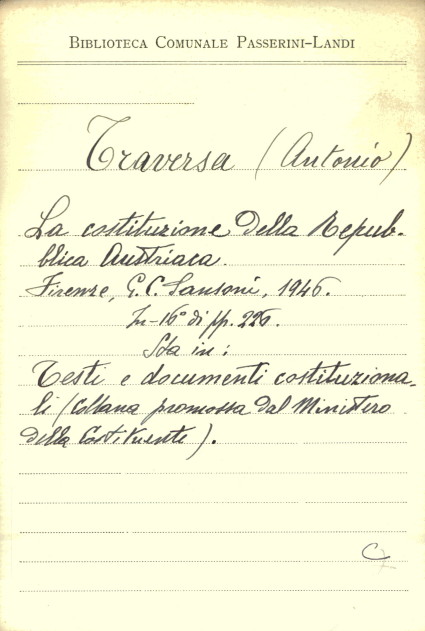 BIBLIOTECA COMUNALE PASSERINI-LANDI
Traversa (Antonio)
La costituzione della Repub-
blica Austriaca.
Firenze, G. C. Sansoni, 1946.
In-16° di pp. 226.
Sta in:
Testi e documenti costituziona-
li (Collana promossa dal Ministero
della Costituente).
C